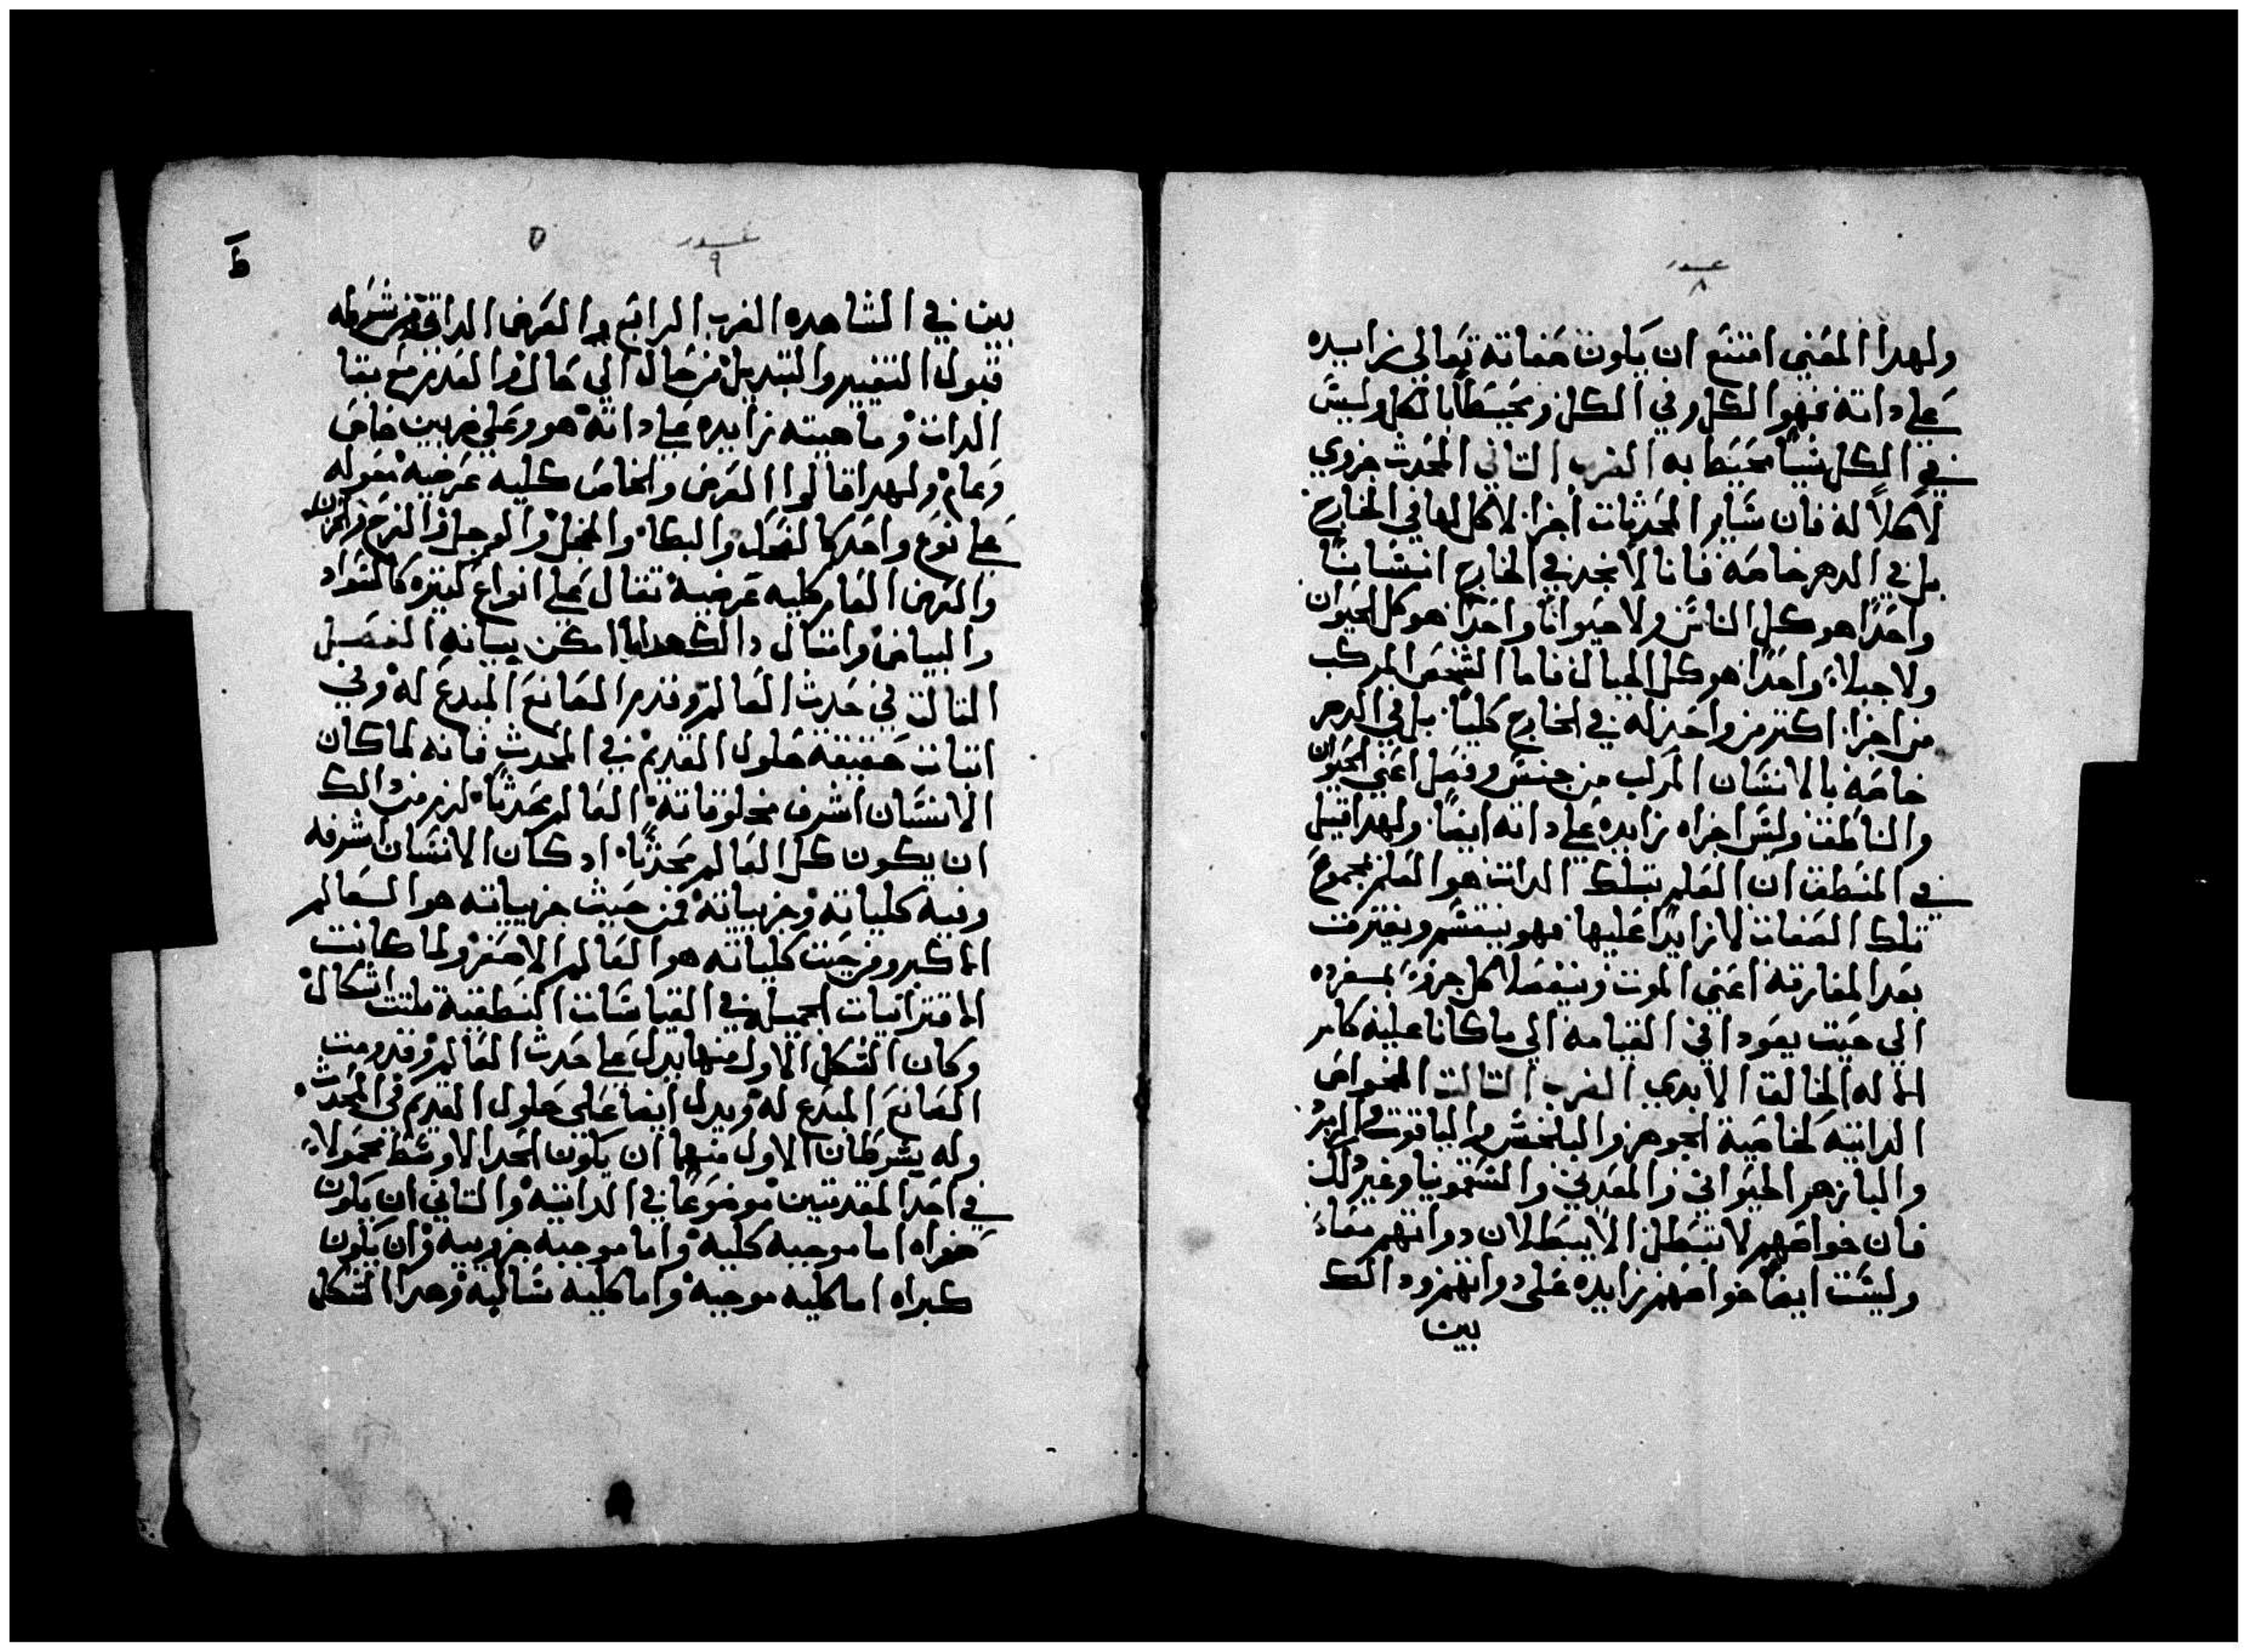 ولهدا المعني امتنع ان يكون صفاته تعالي زايده
علي داته فهو الكل وفي الكل ومحيطا بالكل وليس
في الكل شيا محيطا به الضرب التاني المحدث جزوي
لا كلاً له فان ساير المحدثات اجزا لا كل لها في الخارج
بل في الدهن خاصه فانا لا نجد في الخارج انسانا
واحدًا هو كل الناس ولا حيوانًا واحدًا هو كل الحيوان
ولا جبلاً واحدًا هو كل الجبال فاما الشخص المركب
من اجزا اكتر من واحد له في الخارج كليًا بل في الدهن
خاصه بالانسان المركب من جنس وفصل اعني الحيوان
والناطق وليس اجزاه زايده علي داته ايضًا ولهدا قيل
في المنطق ان العلم بتلك الدات هو العلم بمجموع
تلك الصفات لا زايدًا عليها فهو ينقسم ويفترق
بعد المفارقه اعني الموت وينفصل كل جزو بمفرده
الي حيت يعودا في القيامه الي ما كانا عليه كامر
الاله الخالق الابدي الضرب التالت الخواص
الداتيه لخاصية الجوهر والبلخش والياقوت والزمرد
والبازهر الحيواني والمعدني والسقمونيا وغير دلك
فان خواصهم لا تبطل الا ببطلان دواتهم معاً
وليست ايضًا خواصهم زايده علي دواتهم ودالك
بين
ط
٩
بين في المشاهده الضرب الرابع العرض الداتي من شرطه
قبول التغيير والتبديل من حال الي حال والعدم مع بقا
الدات وماهيته زايده علي داته هو وعلي ضربين خاص
وعام ولهدا قالوا العرض والخاص كليه عرضيه مقوله
علي نوع واحد كالضحك والبكا والخجل والوجل والفرح والحزن
والعرض العام كليه عرضية تقال علي انواع كتيره كالسواد
والبياض وامتال دالك هدا ما امكن بيانه الفصل
التالت في حدث العالم وقدم الصانع المبدع له وفي
اتبات حقيقة حلول القديم في المحدث فانه لما كان
الانسان اشرف مخلوقاته العالم محدثًا لزم من دالك
ان يكون كل العالم محدثًا اد كان الانسان اشرفه
وفيه كلياته وجزيياته فمن حيث جزيياته هو العالم
الاكبر ومن حيت كلياته هو العالم الاصغر ولما كانت
الاقترانيات الحمليه في القياسات المنطقية تلتت اشكال
وكان الشكل الاول منها يدل علي حدث العالم وقدومت
الصانع المبدع له ويدل ايضا علي حلول القديم في المحدث
وله شرطان الاول منهما ان يكون الحد الاوسط محمولاً
في احد المقدمتين موضوعًا في الداتيه والتاني ان يكون
صغراه اما موجبه كلية واما موجبه جزوييه وان يكون
كبراه اما كليه موجبه واما كليه سالبه وهدا الشكل